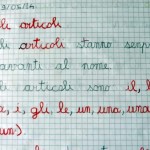 9/03/14
li articoli
li articoli stanno semp
avanti al nome.
li articoli sono il, l
a, i, gli, le, un, una, una
un.)